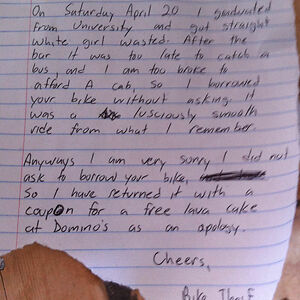 On Saturday April 20 I graduated
from University and got straight
white girl wasted. After the
bar it was too late to catch a
bus and I am too broke to
afford A cab, So I borrowed
your bike without asking. it
was a lusciously smooth
ride from what I remember.
Anyways I am very sorry I did not
ask to borrow your bike,
So I have returned it with a
coupon for a free lava cake
at Domino's as an apology.
Cheers,
Bike Thief